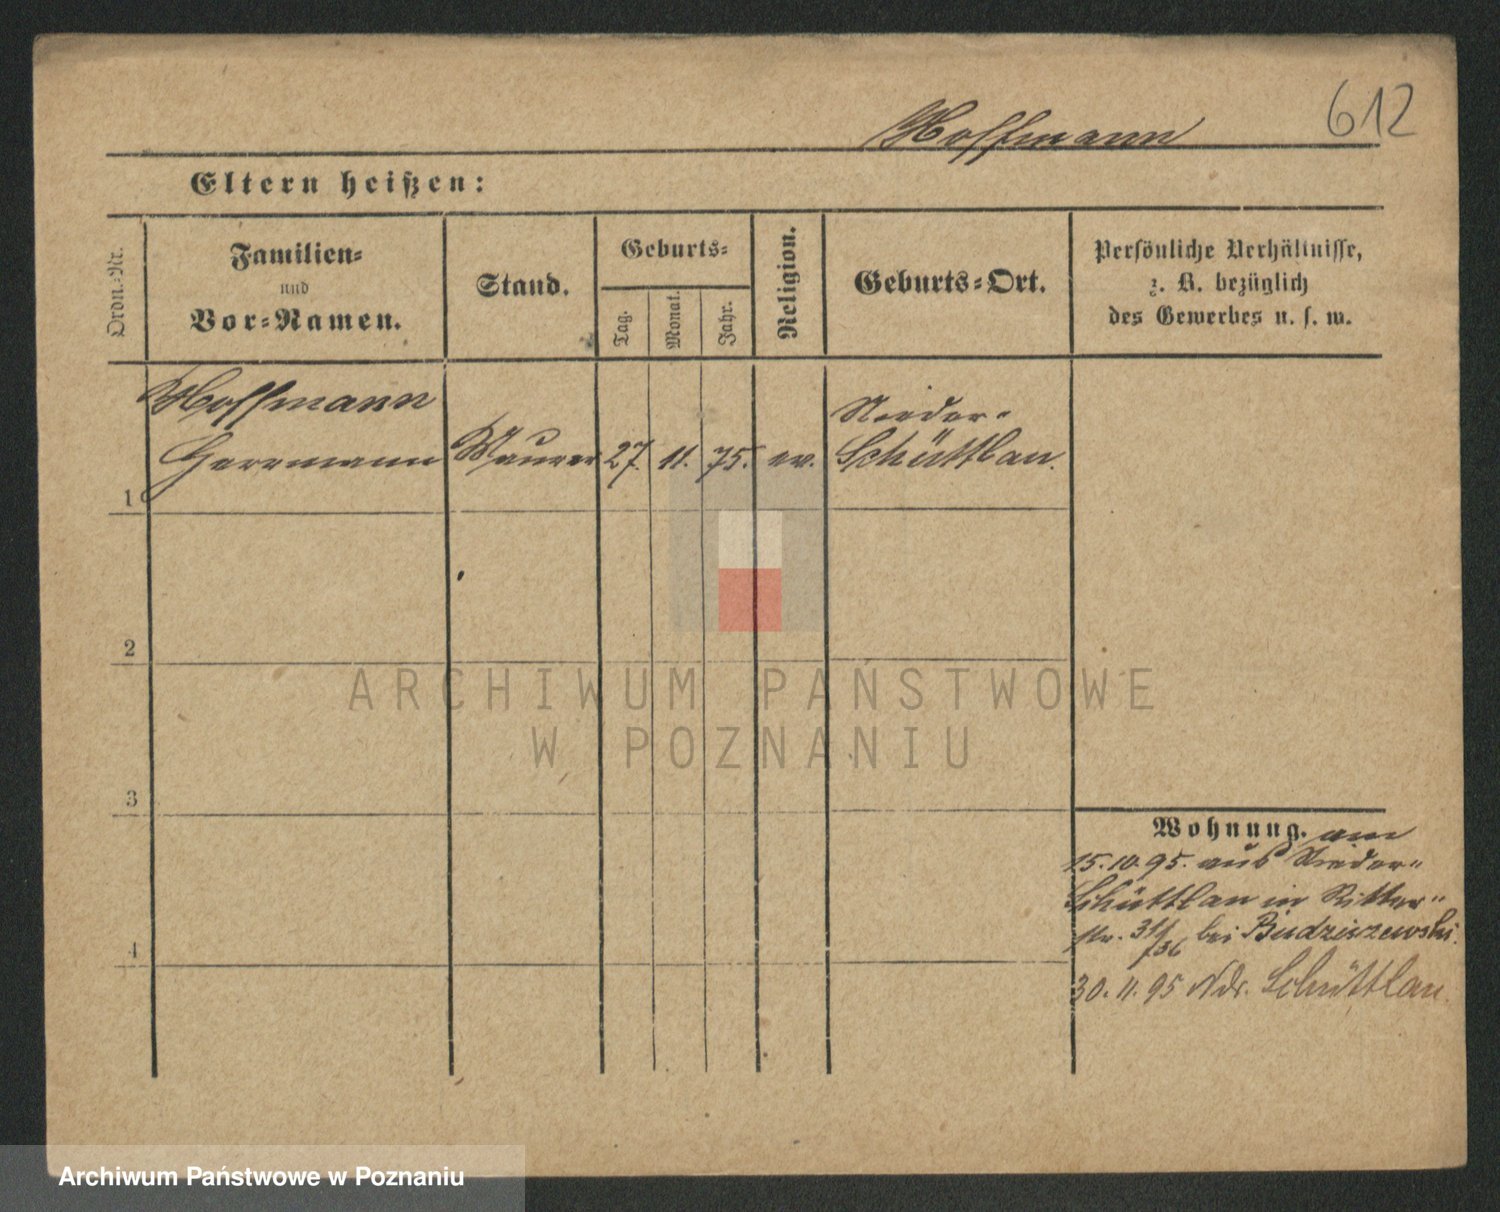 612
Hoffmann
Eltern heißen:
Ordn.-Nr.
Familien-
und
Vor-Namen.
Stand.
Geburts-
Tag.
Monat.
Jahr.
Religion.
Geburts-Ort.
Persönliche Verhältnisse,
z. B. bezüglich
des Gewerbes u. s. w.
Hoffmann
Herrmann
Maurer
27.
11.
75.
ev.
Nieder-
Schüttlau.
1
2
3
4
Wohnung. am
15.10.95. aus Nieder-
Schüttlau in Ritter-
str. 31/36 bei Budziszewski.
30.11.95 Ndr. Schüttlau.
ARCHIWUM PAŃSTWOWE
W POZNANIU
Archiwum Państwowe w Poznaniu